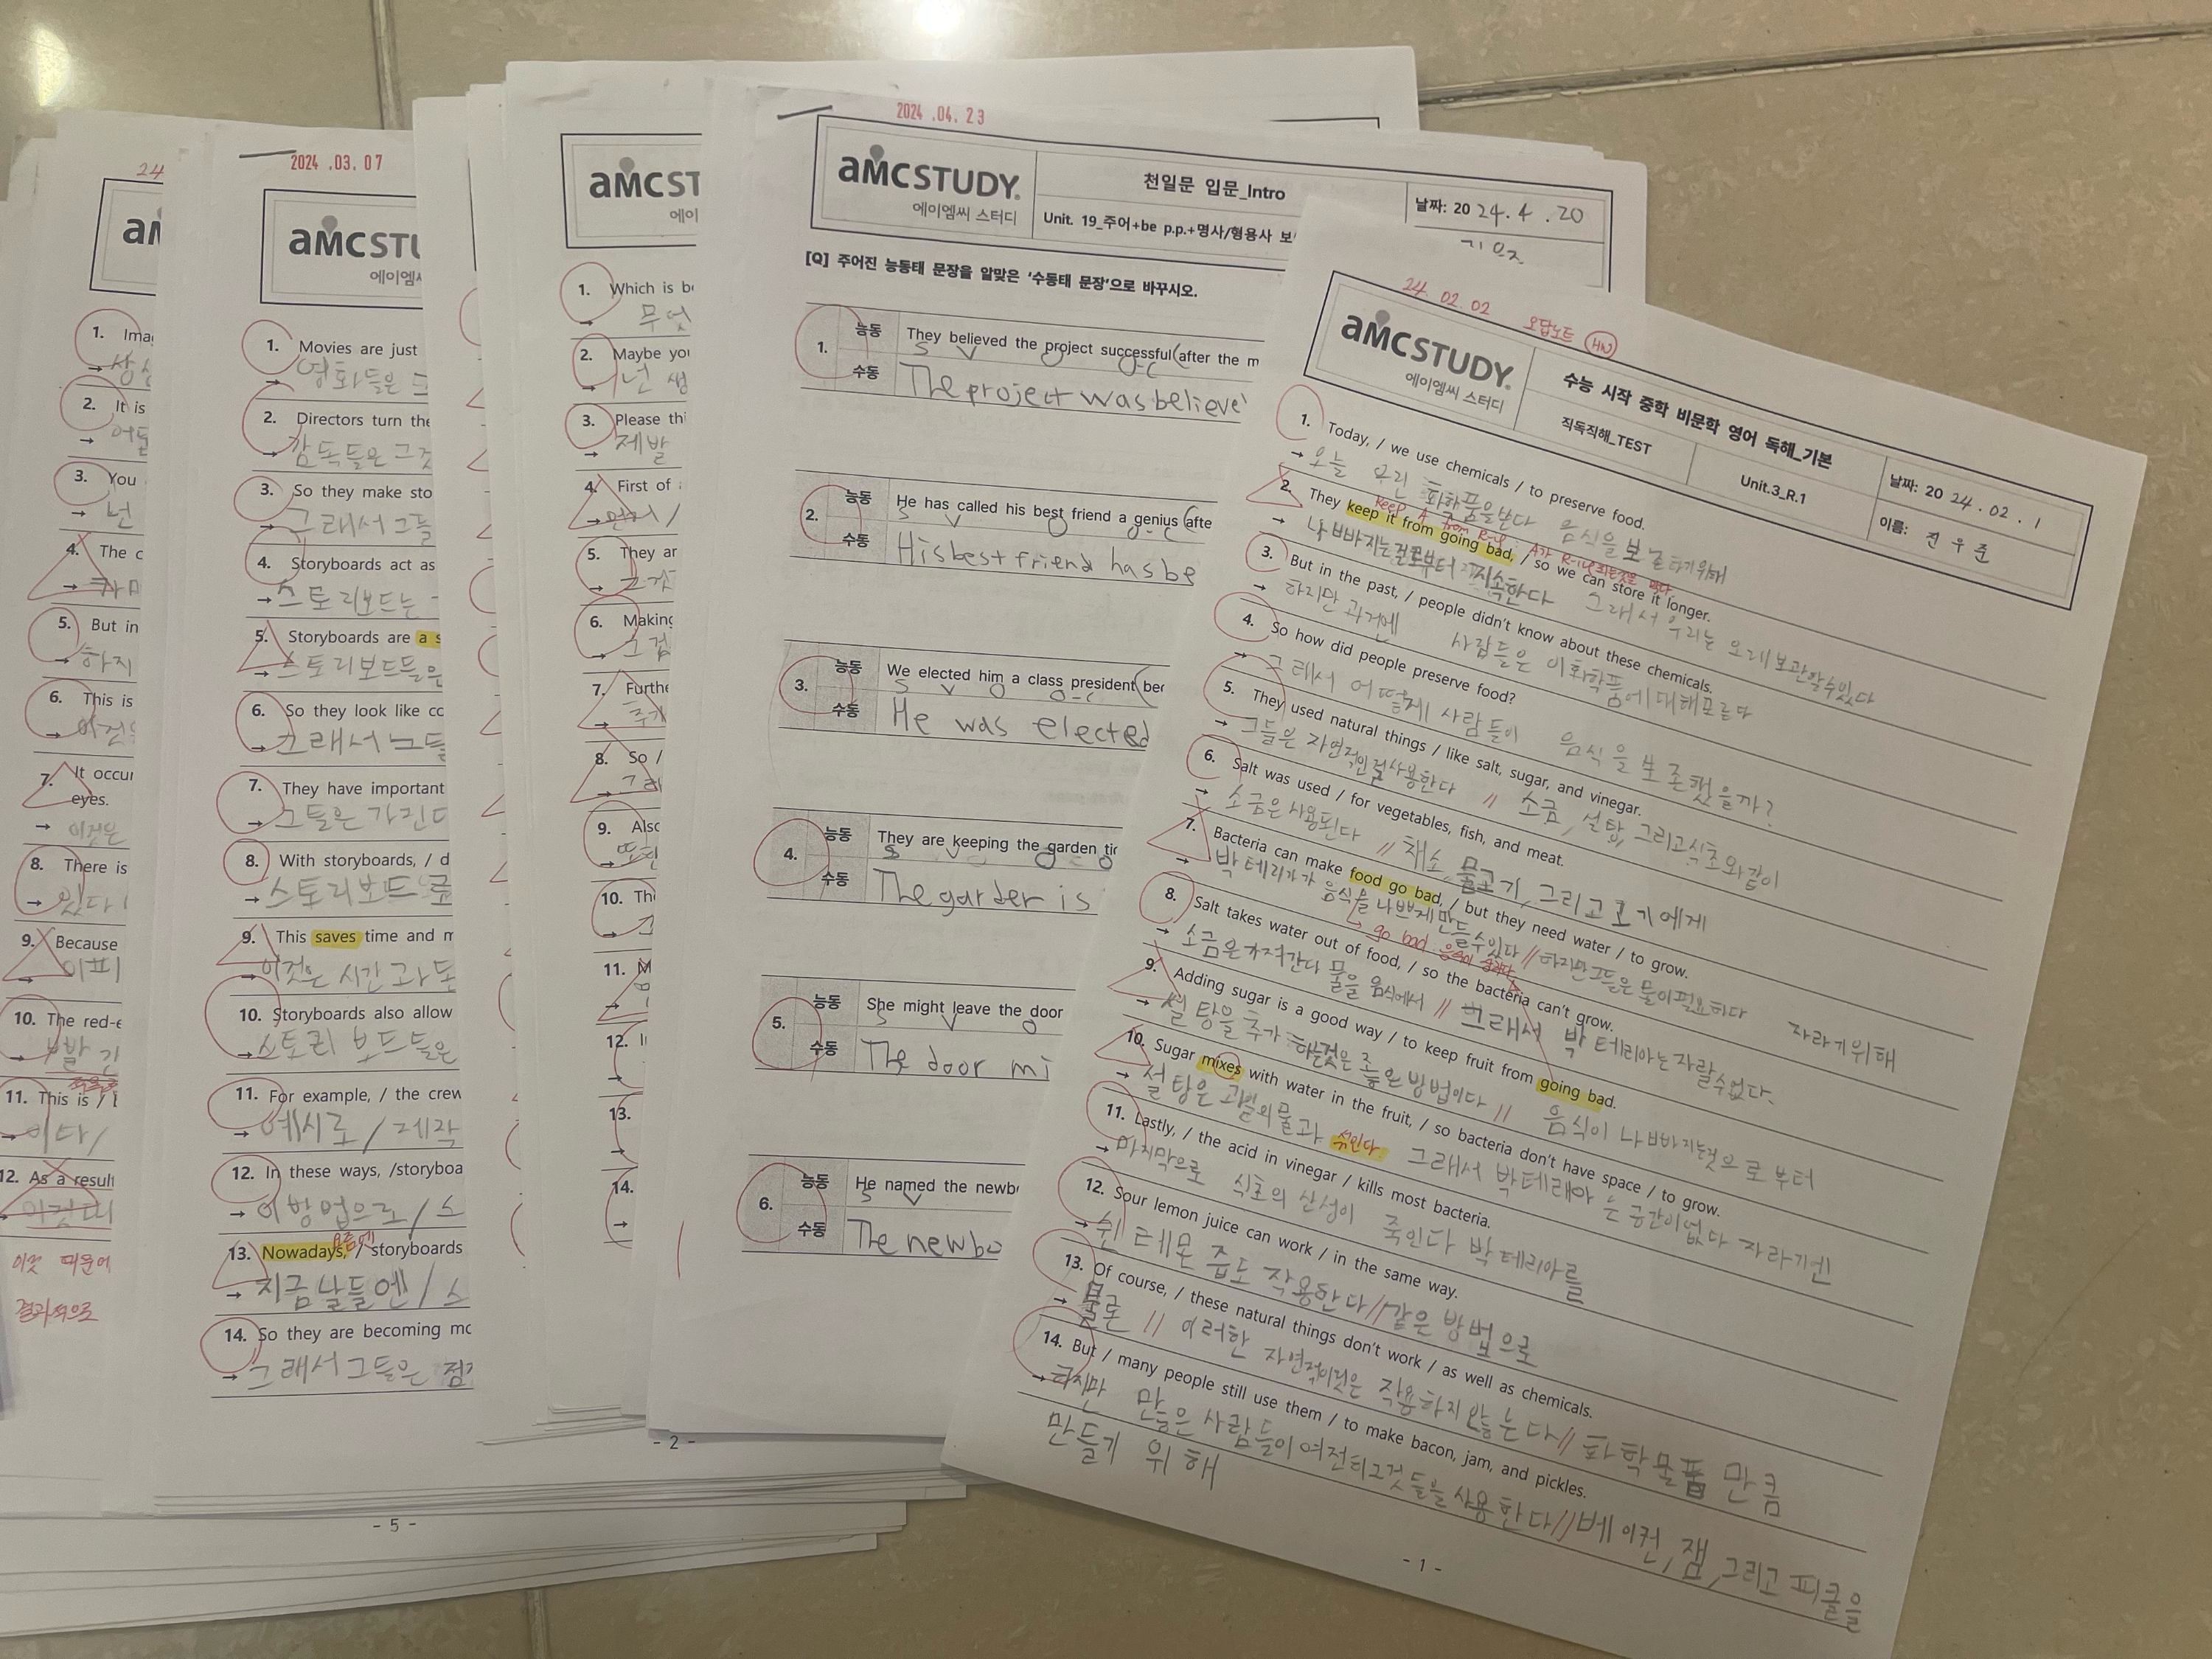 24
aMC
1. Imag
→ 상상
2. It is
→ 어둠
3. You
→ 넌
4. The c
→
5. But in
→ 하지
6. This is
→ 이것은
7. It occur
eyes.
→ 이것은
8. There is
→ 있다
9. Because
→
10. The red-e
→
11. This is /
→ 이다/
12. As a result
→
이것 때문에
결과적으로
- 5 -
2024 .03. 07
aMCSTU
에이엠씨
1. Movies are just
→ 영화들은
2. Directors turn the
→ 감독들은 그것
3. So they make sto
→ 그래서 그들
4. Storyboards act as
→ 스토리보드는
5. Storyboards are a s
→ 스토리보드들은
6. So they look like co
→ 그래서 그들
7. They have important
→ 그들은 가진다
8. With storyboards, / d
→ 스토리보드로
9. This saves time and m
→ 이것은 시간과 돈
10. Storyboards also allow
→ 스토리 보드들은
11. For example, / the crew
→ 예시로 / 제작
12. In these ways, /storyboa
→ 이 방법으로 / 스
요즘에
13. Nowadays, / storyboards
→ 지금 날들엔 / 스
14. So they are becoming mo
→ 그래서 그들은 점
aMCST
에이
1. Which is be
→ 무엇
2. Maybe you
→ 넌 생
3. Please thi
→ 제발
4. First of
→ 먼저 /
5. They ar
→ 그것
6. Making
→
7. Furthe
→ 추가
8. So /
→ 그래
9. Also
→ 또한
10. Th
→
11. M
→
12. I
→
13.
→
14.
→
- 2 -
2024 .04. 23
aMCSTUDY.
에이엠씨 스터디
천일문 입문_Intro
Unit. 19_주어+be p.p.+명사/형용사 보
날짜: 20 24. 4 . 20
[Q] 주어진 능동태 문장을 알맞은 '수동태 문장'으로 바꾸시오.
1. 능동 They believed the project successful (after the m
S V O O-C
수동 The project was believe
2. 능동 He has called his best friend a genius (afte
S V O O-C
수동 His best friend has be
3. 능동 We elected him a class president (bec
S V O O-C
수동 He was elected
4. 능동 They are keeping the garden tid
S V O O
수동 The garden is
5. 능동 She might leave the door
S V O
수동 The door mi
6. 능동 He named the newb
S V
수동 The newbo
24. 02. 02 오답노트 HW
aMCSTUDY.
에이엠씨 스터디
수능 시작 중학 비문학 영어 독해_기본
직독직해_TEST
Unit.3_R.1
날짜: 20 24 . 02 . 1
이름: 진 우 준
1. Today, / we use chemicals / to preserve food.
→ 오늘 우린 화학품을쓴다 음식을 보존하기위해
2. They keep it from going bad, / so we can store it longer.
→ 나빠지는걸로부터 지속한다 그래서 우리는 오래 보관할수있다
3. But in the past, / people didn't know about these chemicals.
→ 하지만 과거엔 사람들은 이화학품에대해모른다
4. So how did people preserve food?
→ 그래서 어떻게 사람들이 음식을 보존했을까?
5. They used natural things / like salt, sugar, and vinegar.
→ 그들은 자연적인걸사용한다 // 소금, 설탕, 그리고식초와같이
6. Salt was used / for vegetables, fish, and meat.
→ 소금은 사용된다 // 채소, 물고기, 그리고 고기에게
7. Bacteria can make food go bad, / but they need water / to grow.
→ 박테리아가 음식을 나쁘게 만들수있다 // 하지만그들은 물이필요하다 자라기위해
→ go bad: 음식이 상하다
8. Salt takes water out of food, / so the bacteria can't grow.
→ 소금은가져간다 물을 음식에서 // 그래서 박테리아는 자랄수없다.
9. Adding sugar is a good way / to keep fruit from going bad.
→ 설탕을 추가하는것은 좋은 방법이다 // 음식이 나빠지는것으로 부터
10. Sugar mixes with water in the fruit, / so bacteria don't have space / to grow.
→ 설탕은 과일의물과 섞인다. 그래서 박테리아는 공간이없다 자라기엔
11. Lastly, / the acid in vinegar / kills most bacteria.
→ 마지막으로 식초의 산성이 죽인다 박테리아를
12. Sour lemon juice can work / in the same way.
→ 쉰 레몬 즙도 작용한다 // 같은 방법으로
13. Of course, / these natural things don't work / as well as chemicals.
→ 물론 // 이러한 자연적이것은 작용하지 않는다 // 화학물품 만큼
14. But / many people still use them / to make bacon, jam, and pickles.
→ 하지만 많은 사람들이 여전히그것들을 사용한다 // 베이컨, 잼, 그리고 피클을
만들기 위해
- 1 -